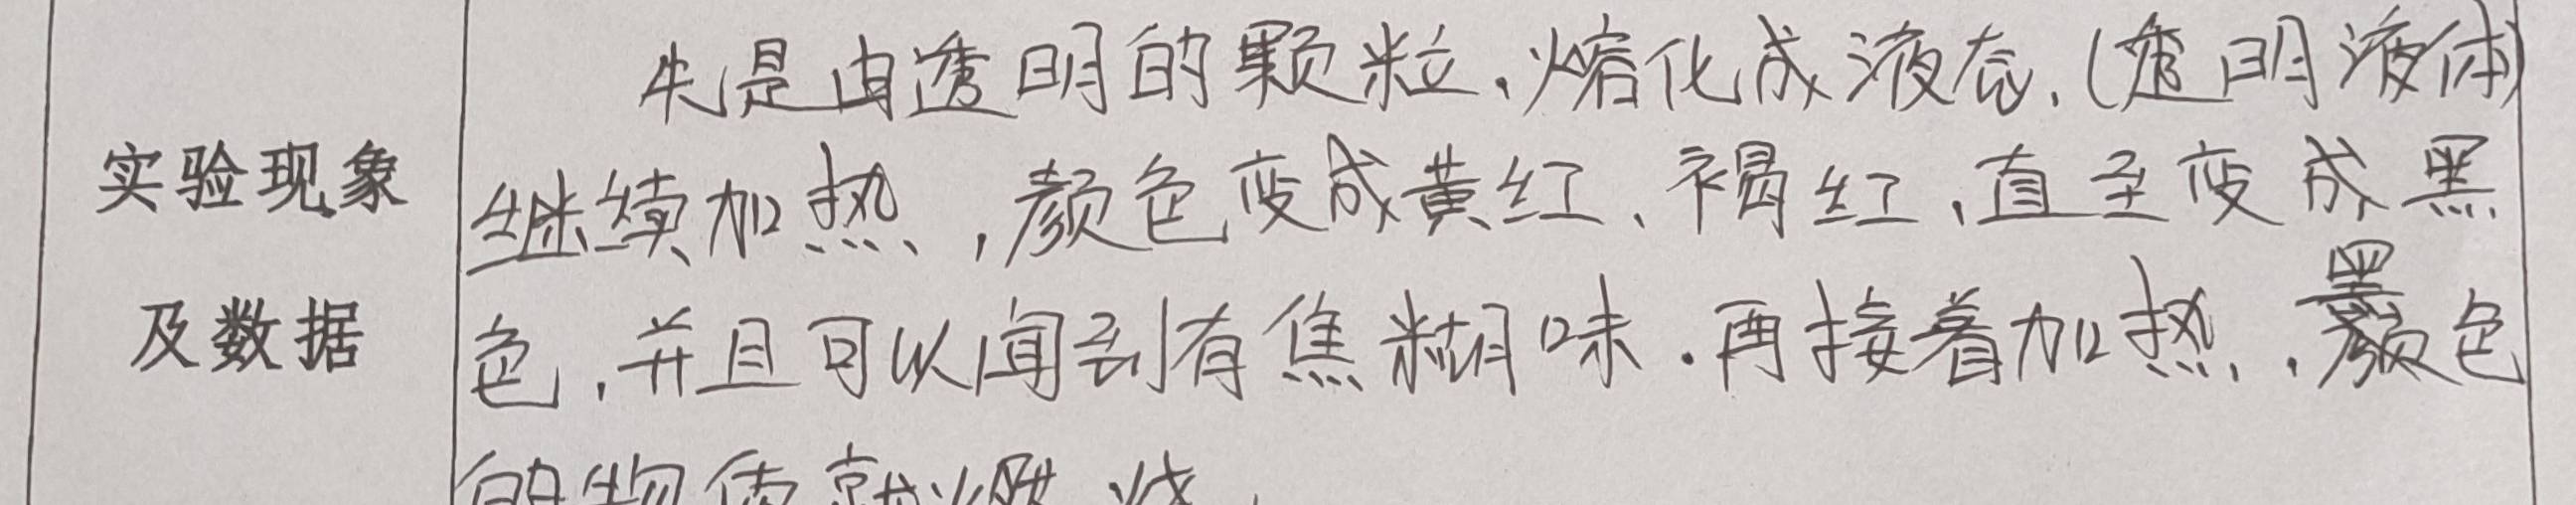 先是由透明的颗粒,熔化成液态,(透明液体)
实验现象
继续加热,颜色变成黄红、褐红,直至变成黑
及数据
色,并且可以闻到有焦糊味.再接着加热,黑色
的物质就燃烧.